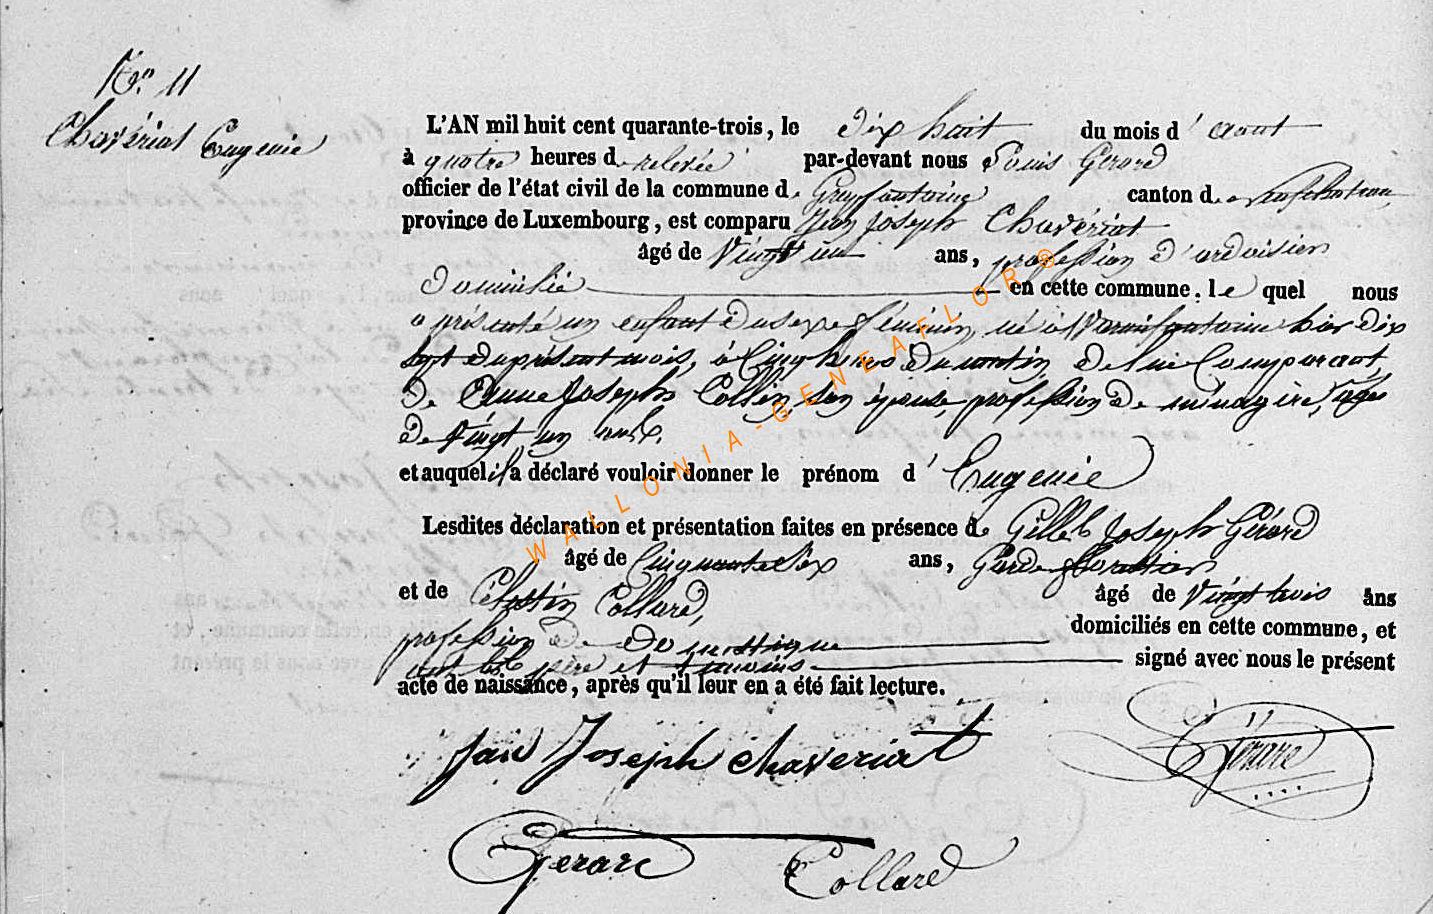 N.° 11
Chavériat Eugenie
L'AN mil huit cent quarante-trois, le dix huit du mois d'aout
à quatre heures de relevée par-devant nous Louis Gerard
officier de l'état civil de la commune de Grapfontaine canton de neufchateau
province de Luxembourg, est comparu Jean Joseph Chavériat
âgé de Vingt un ans, profession d'ardoisier
domicilié en cette commune, le quel nous
a présenté un enfant du sexe féminin, né à Warmifontaine hier dix
sept du présent mois, à Cinq heures du matin de lui Comparant,
de Anne Joseph Collin, son épouse, profession de ménagère, agée
de Vingt un ans
et auquel il a déclaré vouloir donner le prénom d'Eugenie
Lesdites déclaration et présentation faites en présence de Gilles Joseph Gérard
âgé de Cinquante Six ans, Garde forestier
et de Célestin Collard, âgé de Vingt trois ans
profession de domestique domiciliés en cette commune, et
ont les père et témoins signé avec nous le présent
acte de naissance, après qu'il leur en a été fait lecture.
Jan Joseph chaveriat
Gérard
Gerard Collard
WALLONIA-GENEAFLOR®